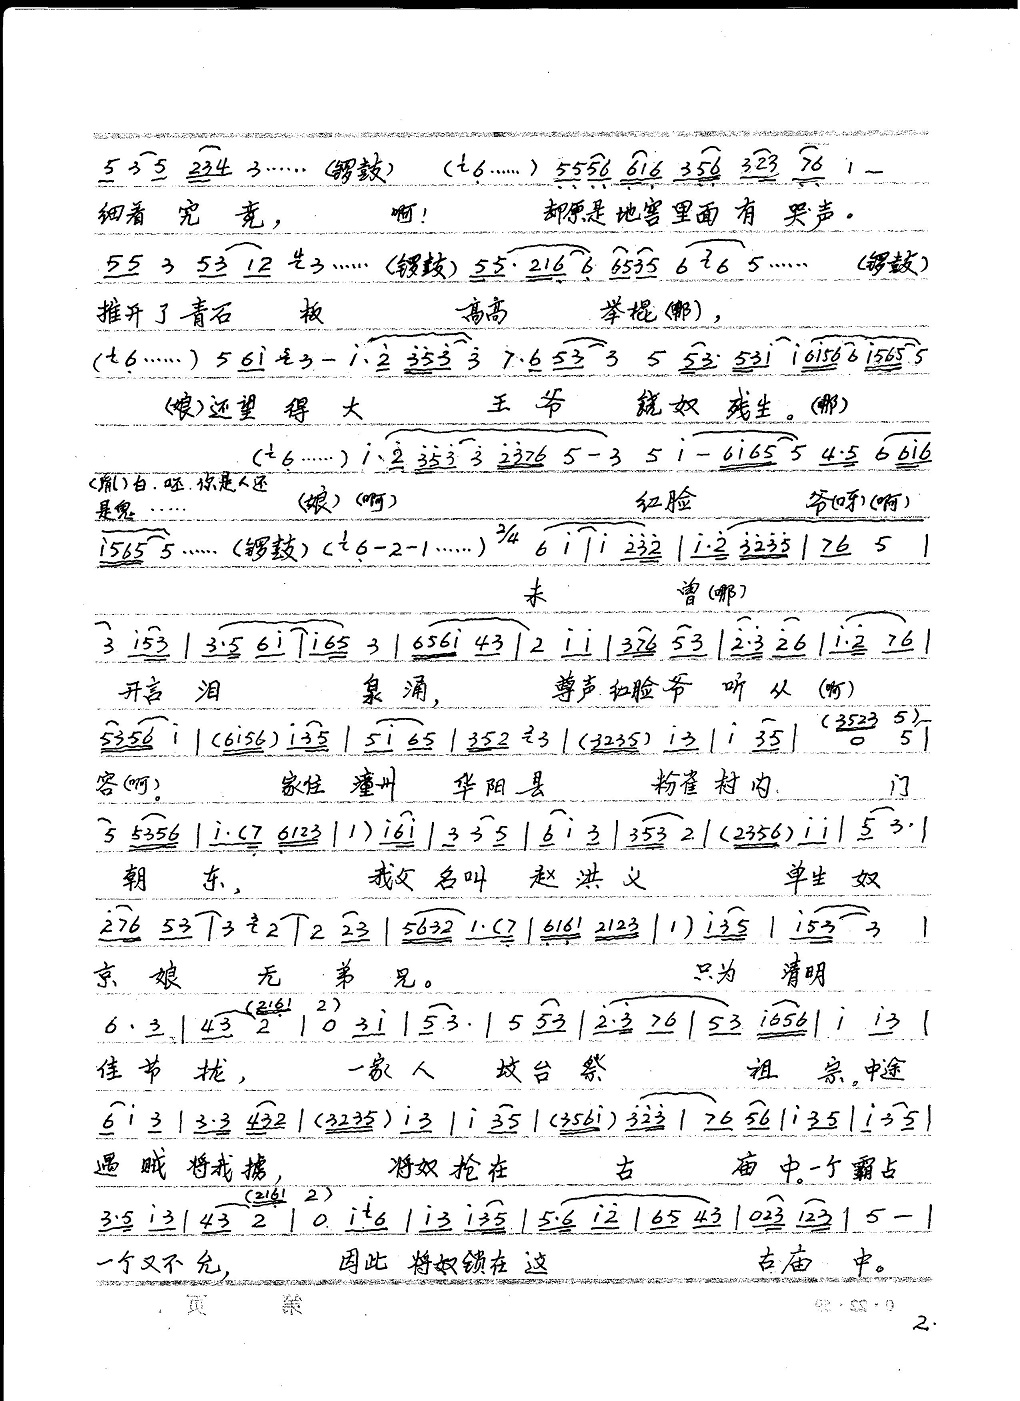 5 3 5 234 3······ (锣鼓) (6······) 5556 616 356 323 76 1 —
细看究竟, 啊! 却原是地窖里面有哭声。
55 3 53 12 3······ (锣鼓) 55·216 6 6535 6 6 5······ (锣鼓)
推开了青石板 高高 举棍(哪),
(6······) 5 61 3 — 1·2 353 3 7·6 53 3 5 53· 531 161566 1565 5
(娘)还望得大 王爷 饶奴残生。(哪)
(6······) 1·2 353 3 2376 5—3 5 1—6165 5 4·5 6 616
(胤)白.呸.你是人还
是鬼. ····· (娘)(啊) 红脸 爷(呀)(啊)
1565 5 ······ (锣鼓) (6—2—1······) 2/4 6 1 | 1 232 | 1·2 3235 | 76 5 |
未 曾(哪)
3 153 | 3·5 61 | 165 3 | 6561 43 | 2 11 | 376 53 | 2·3 26 | 1·2 76 |
开言泪 泉涌, 尊声红脸爷 听从(啊)
5356 1 | (6156) 135 | 51 65 | 352 3 | (3235) 13 | 1 35 | (3523 5) 0 5 |
容(啊)。 家住潼州 华阳县 粉雀村内 门
5 5356 | 1·(7 6123 | 1) 161 | 3 35 | 6 1 3 | 353 2 | (2356) 11 | 5 3· |
朝东, 我父名叫 赵洪义 单生奴
276 53 | 3 2 | 2 23 | 5632 1·(7 | 6161 2123 | 1) 135 | 153 3 |
京娘 无弟兄。 只为清明
6·3 | 43 2 (2161 2) | 0 31 | 53· | 5 53 | 2·3 76 | 53 1656 | 1 13 |
佳节拢, 一家人 坟台祭 祖宗。中途
6 1 3 | 3·3 432 | (3235) 13 | 1 35 | (3561) 323 | 76 56 | 135 | 135 |
遇贼将我掳, 将奴抢在 古 庙中。一个霸占
3·5 13 | 43 2 (2161 2) | 0 16 | 13 135 | 5·6 12 | 65 43 | 023 123 | 5 — |
一个又不允, 因此将奴锁在这 古庙中。
第 页
2.